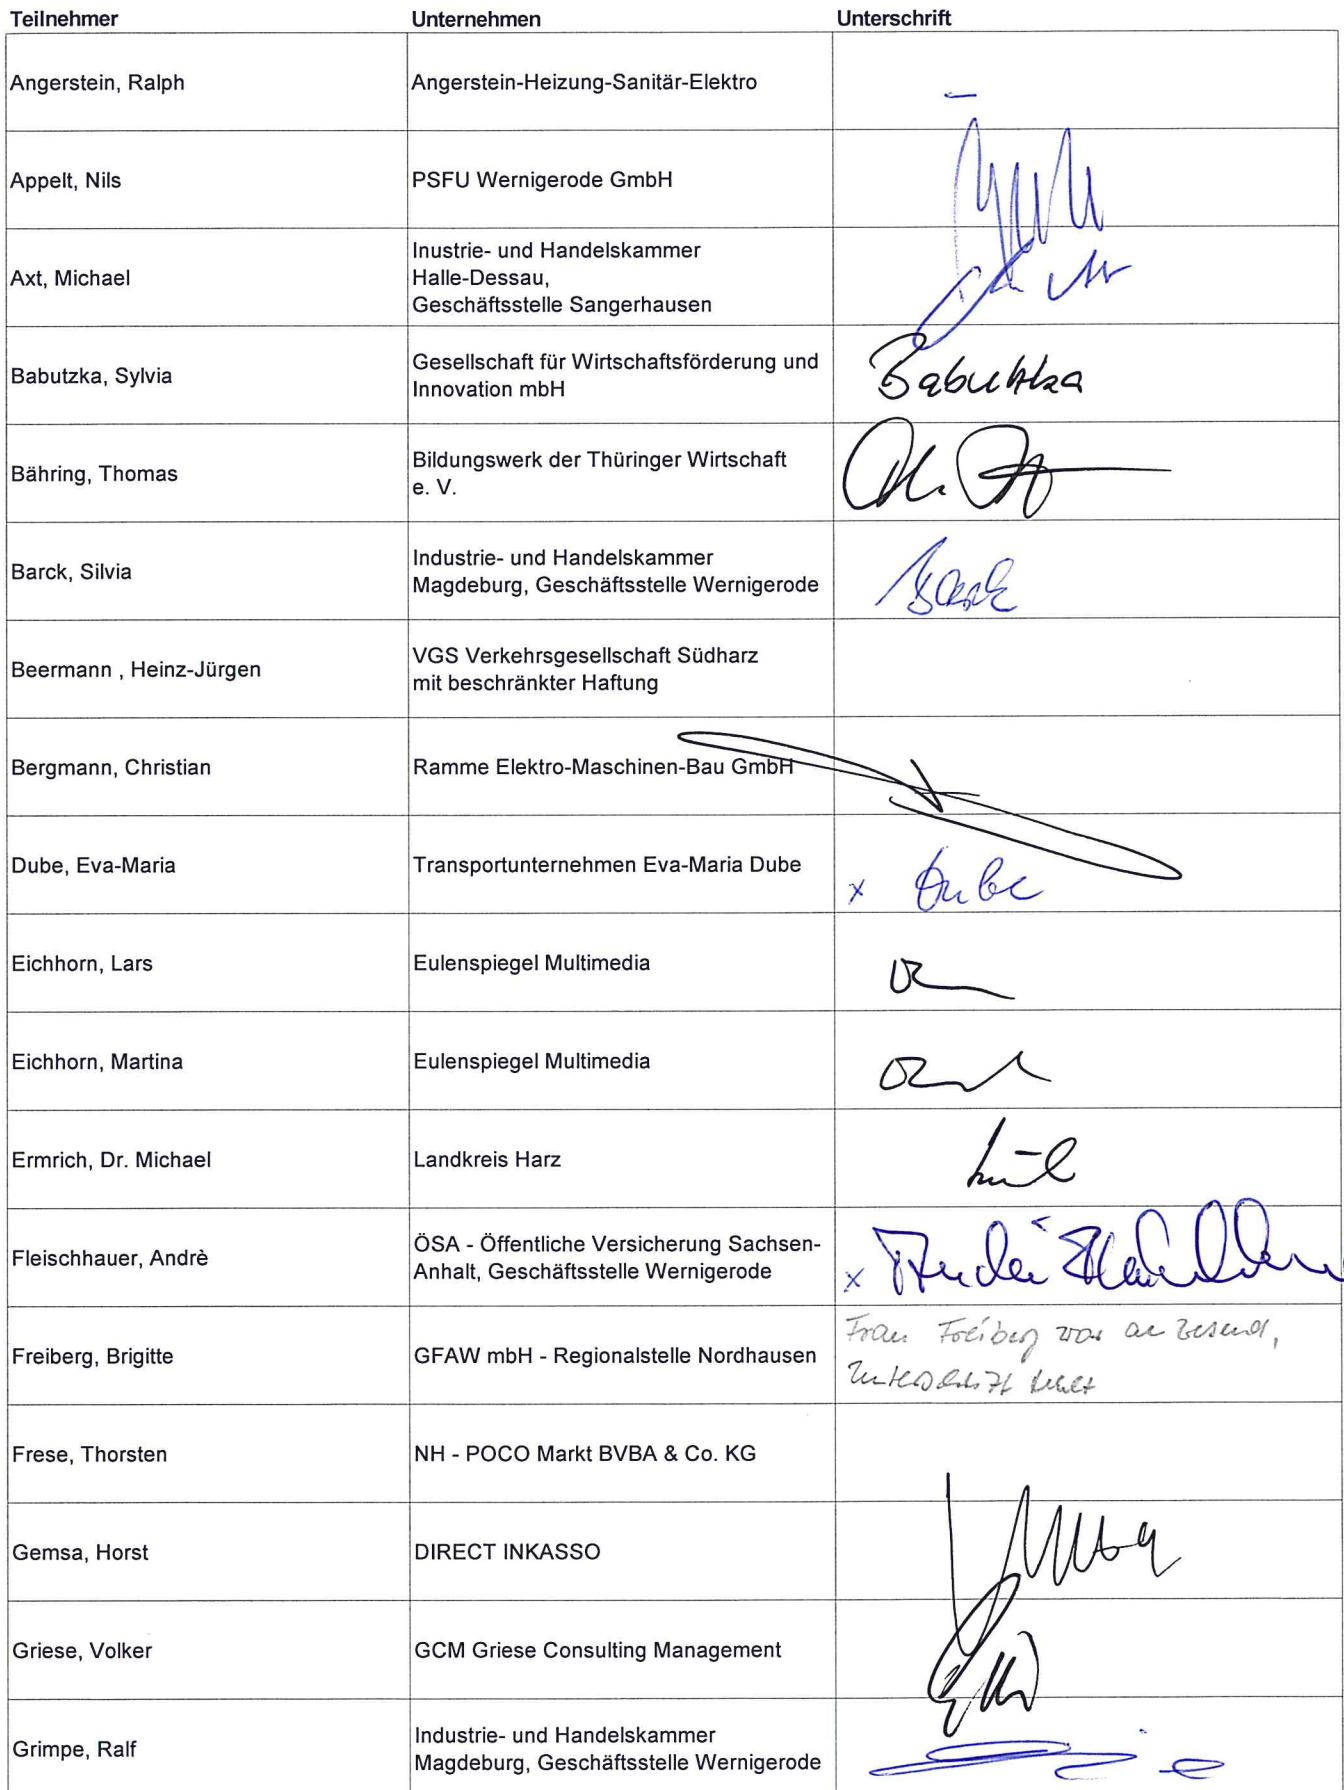 Teilnehmer Unternehmen Unterschrift
Angerstein, Ralph Angerstein-Heizung-Sanitär-Elektro
Appelt, Nils PSFU Wernigerode GmbH
Axt, Michael Inustrie- und Handelskammer
Halle-Dessau,
Geschäftsstelle Sangerhausen
Babutzka, Sylvia Gesellschaft für Wirtschaftsförderung und
Innovation mbH
Babutzka
Bähring, Thomas Bildungswerk der Thüringer Wirtschaft
e. V.
Barck, Silvia Industrie- und Handelskammer
Magdeburg, Geschäftsstelle Wernigerode
Barck
Beermann , Heinz-Jürgen VGS Verkehrsgesellschaft Südharz
mit beschränkter Haftung
Bergmann, Christian Ramme Elektro-Maschinen-Bau GmbH
Dube, Eva-Maria Transportunternehmen Eva-Maria Dube x Dube
Eichhorn, Lars Eulenspiegel Multimedia
Eichhorn, Martina Eulenspiegel Multimedia
Ermrich, Dr. Michael Landkreis Harz
Fleischhauer, Andrè ÖSA - Öffentliche Versicherung Sachsen-
Anhalt, Geschäftsstelle Wernigerode
x
Freiberg, Brigitte GFAW mbH - Regionalstelle Nordhausen
Frau Freiberg war anwesend,
Unterschrift fehlt
Frese, Thorsten NH - POCO Markt BVBA & Co. KG
Gemsa, Horst DIRECT INKASSO
Griese, Volker GCM Griese Consulting Management
Grimpe, Ralf Industrie- und Handelskammer
Magdeburg, Geschäftsstelle Wernigerode